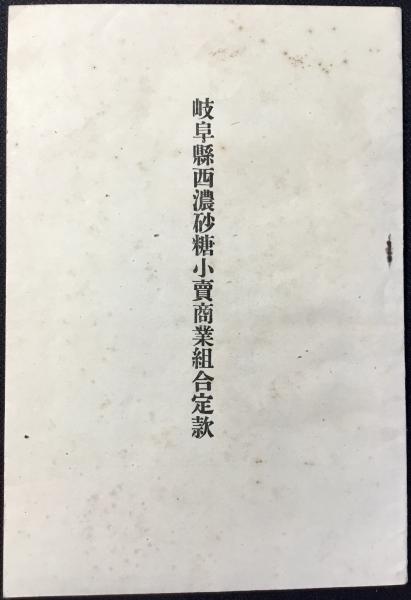 岐阜縣西濃砂糖小賣商業組合定款